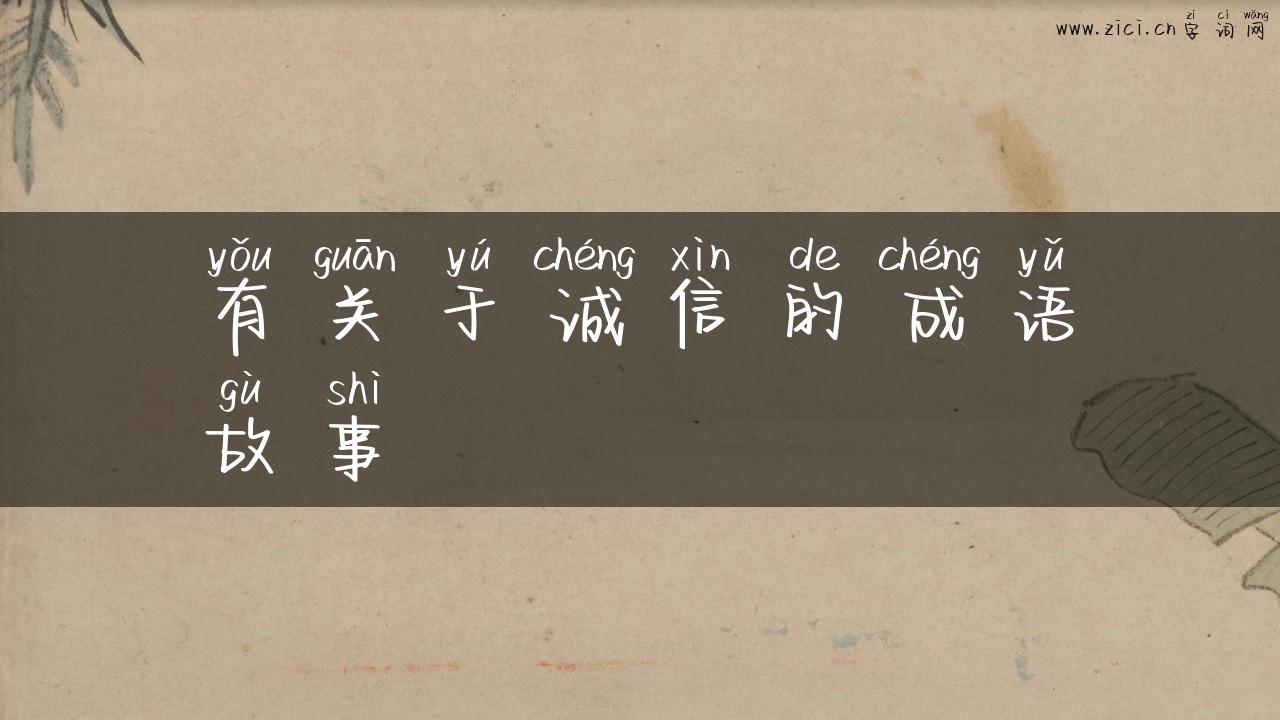 zì cí wǎng
www.zici.cn 字词网
yǒu guān yú chéng xìn de chéng yǔ
有关于诚信的成语
gù shì
故事